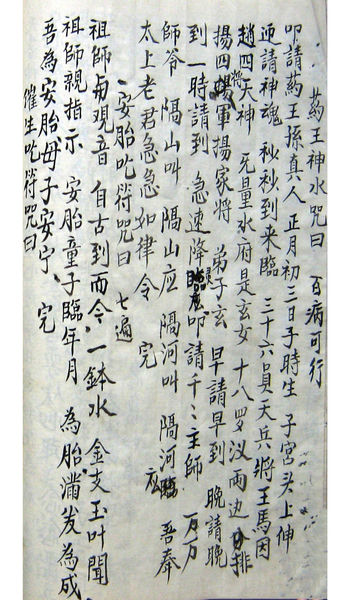 药王神水咒曰 百病可行
叩請药王孫真人正月初二日子時生 子宮头上伸
迎請神魂 秘秘到来臨 三十六員天兵將王馬因
趙四大神 旡量水府是玄女 十八罗汉両边排
揚四揚軍揚家將 弟子玄 早請早到 晚請晚
到一時請到 急速降臨 叩請千千主師 万万
師爷 隔山叫 隔山应 隔河叫 隔河应 吾奉
太上老君急急如律令 完
安胎吃符咒曰 七遍
祖師与观音 自古到而今 一鉢水 金支玉叶聞
祖師親指示 安胎童子臨年月 為胎滿发為成
吾為安胎母子安宁 完
催生吃符咒曰